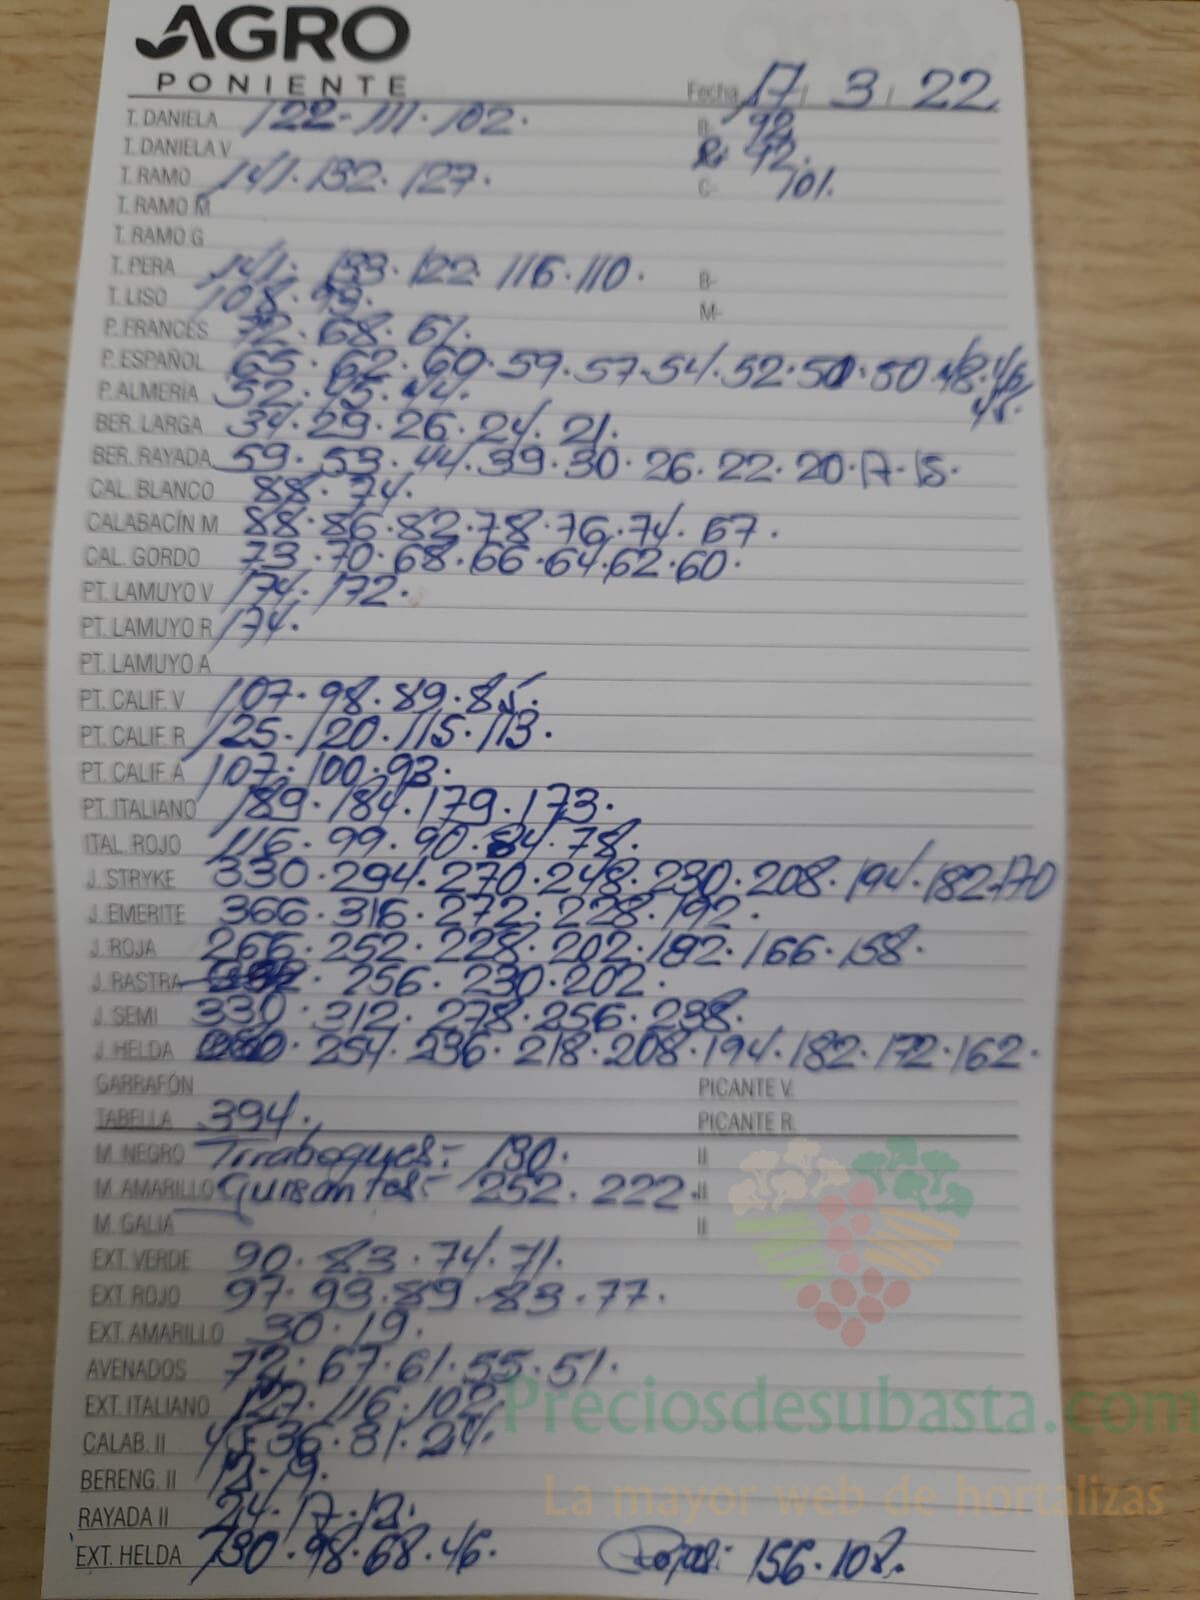 AGRO
PONIENTE
Fecha 17 / 3 / 22
T. DANIELA 122 - 111 · 102 · B- 92
T. DANIELA V R: 92.
T. RAMO 141 · 132 · 127 · C- 101.
T. RAMO M
T. RAMO G
T. PERA 141 · 133 · 122 · 116 · 110 · B-
T. LISO 108 · 99. M-
P. FRANCÉS 72 · 68 · 61.
P. ESPAÑOL 65 · 62 · 60 · 59 · 57 · 54 · 52 · 50 · 50 · 48 · 46
45.
P. ALMERÍA 52 · 45 · 44.
BER. LARGA 34 · 29 · 26 · 24 · 21.
BER. RAYADA 59 · 53 · 44 · 39 · 30 · 26 · 22 · 20 · 17 · 15 ·
CAL. BLANCO 88 · 74.
CALABACÍN M 88 · 86 · 82 · 78 · 76 · 74 · 67 ·
CAL. GORDO 73 · 70 · 68 · 66 · 64 · 62 · 60 ·
PT. LAMUYO V 174 · 172 ·
PT. LAMUYO R 174.
PT. LAMUYO A
PT. CALIF. V 107 · 98 · 89 · 85.
PT. CALIF. R 125 · 120 · 115 · 113 ·
PT. CALIF. A 107 · 100 · 93.
PT. ITALIANO 189 · 184 · 179 · 173 ·
ITAL. ROJO 116 · 99 · 90 · 84 · 78.
J. STRYKE 330 · 294 · 270 · 248 · 230 · 208 · 194 · 182 · 170
J. EMERITE 366 · 316 · 272 · 228 · 192 ·
J. ROJA 266 · 252 · 228 · 202 · 182 · 166 · 158 ·
J. RASTRA 256 · 230 · 202 ·
J. SEMI 330 · 312 · 278 · 256 · 238.
J. HELDA 254 · 236 · 218 · 208 · 194 · 182 · 172 · 162 ·
GARRAFÓN PICANTE V.
TABELLA 394. PICANTE R.
M. NEGRO Tirabeques:- 130. II
M. AMARILLO Guisantes:- 252 · 222 · II
M. GALIA II
EXT. VERDE 90 · 83 · 74 · 71.
EXT. ROJO 97 · 93 · 89 · 83 · 77.
EXT. AMARILLO 30 · 19.
AVENADOS 72 · 67 · 61 · 55 · 51.
EXT. ITALIANO 127 · 116 · 102
CALAB. II 36 · 31 · 24.
BERENG. II
RAYADA II 24 · 17 · 12.
EXT. HELDA 130 · 98 · 68 · 46. Rojas: 156 · 108.
Preciosdesubasta.com
La mayor web de hortalizas